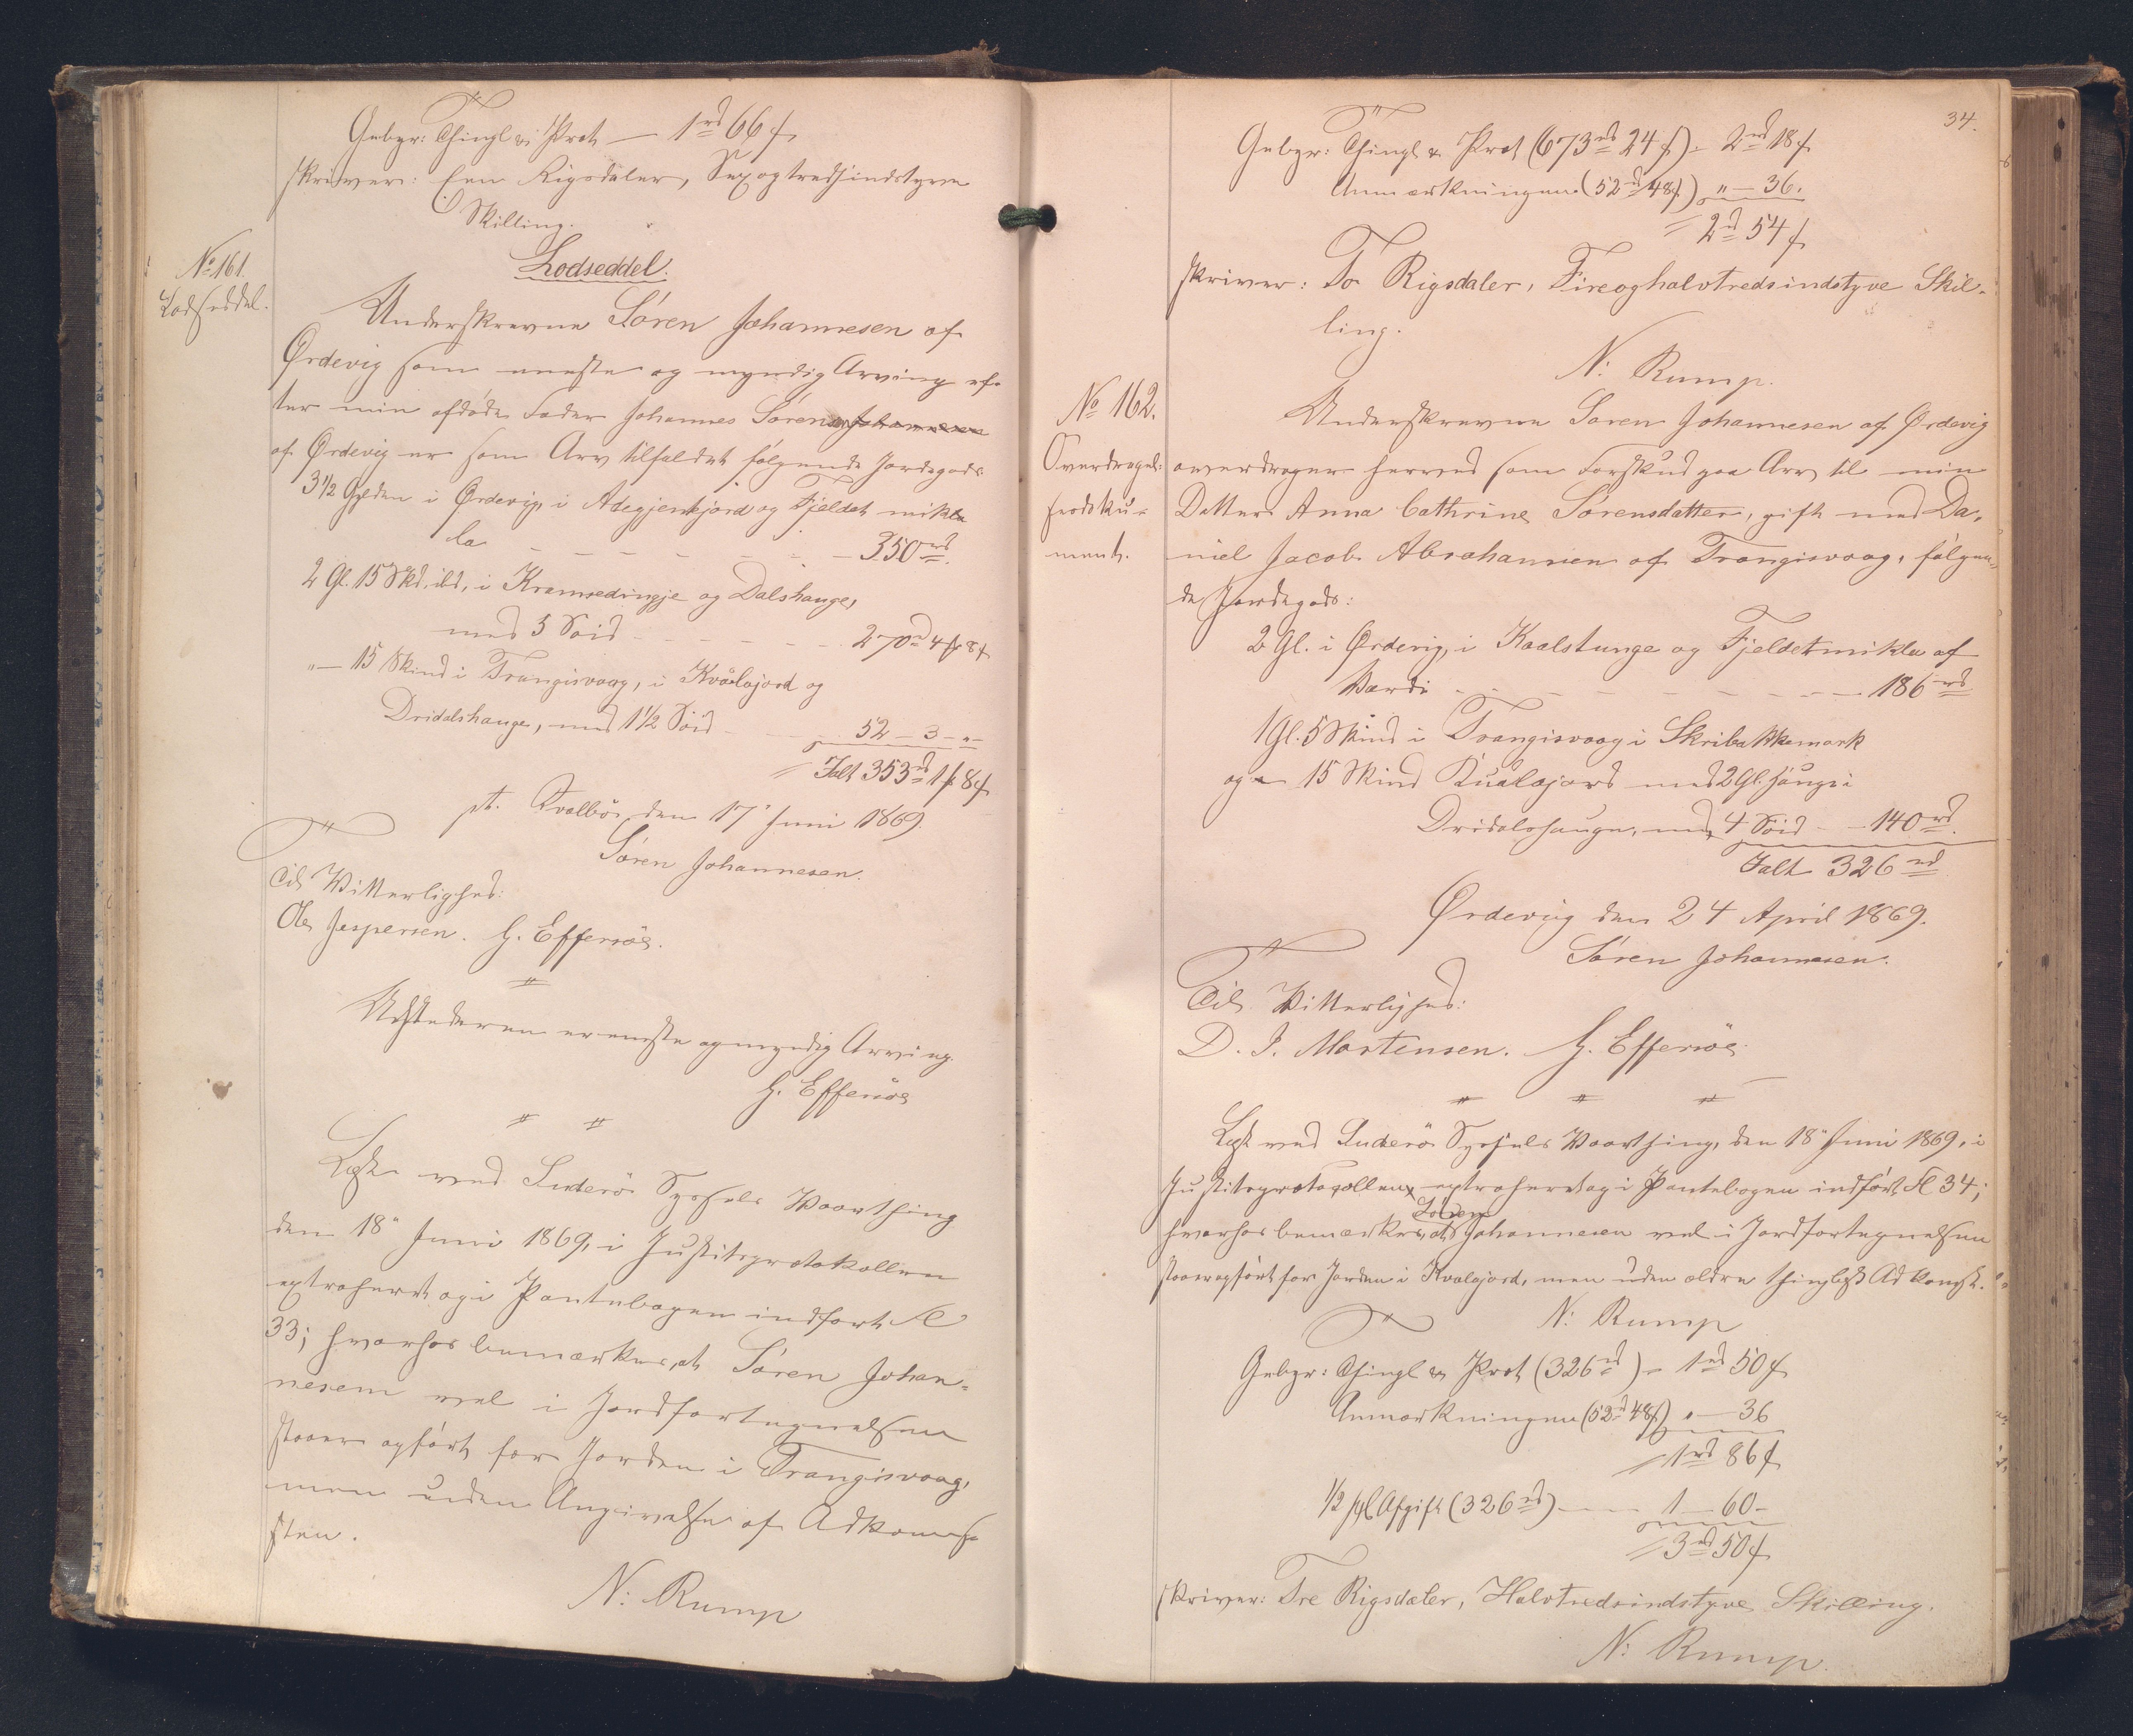 Gebyr: Thingl & Prot — 1 rd 66 ß
skriver: Een Rigsdaler, Sexogtredsindstyve
Skilling.
No 161.
Lodseddel.
Lodseddel:
Underskrevne Sören Johannesen af
Ørdevig som eneste og myndig Arving ef-
ter min afdöde Fader Johannes Sörensen
af Ørdevig er som Arv tilfaldet fölgende Jordegods:
3 1/2 Gylden i Ørdevig, i Adegjenkjord og Fjeldet mikle
la - - - - - - 350 rd
2 Gl. 15 Skd. ibd, i Kramsedingje og Dalshauge,
med 3 Söid - - - - 270 rd 4 # 8 ß
"— 15 Skind i Trangisvaag, i Kvålajord og
Dridalshauge, med 1 1/2 Söid - - 52 — 3 — " —
Ialt 353 rd 1 # 8 ß
pt. Qvalbö, den 17' Juni 1869.
Sören Johannesen.
Til Vitterlighed:
Ole Jespersen. H. Effersöe.
Udstederen er eneste og myndig Arving.
H. Effersöe
Læst ved Suderö Syssels Vaarthing
den 18' Juni 1869, i Justitsprotokollen
extraheret og i Pantebogen indfört Fol
33; hvorhos bemærkes, at Sören Johan-
nesen vel i Jordfortegnelsen
staaer opfört for Jorden i Trangisvaag,
men uden Angivelse af Adkom-
sten.
N: Rump
34.
Gebyr: Thingl & Prot (673 rd 24 ß) = 2 rd 18 ß
Anmærkningen (52 rd 48 ß) " — 36.
2 rd 54 ß
skriver: To Rigsdaler, Fireoghalvtredsindstyve Skil-
ling.
N: Rump.
No 162.
Overdragel-
sesdoku-
ment.
Underskrevne Sören Johannesen af Ørdevig
overdrager herved som Forskud paa Arv til min
Datter Anna Cathrine Sörensdatter, gift med Da-
niel Jacob Abrahamsen af Trangisvaag, fölgen-
de Jordegods:
2 Gl. i Ørdevig, i Kaalstunge og Fjeldetmikle af
Værdi - - - - - - - 186 rd
1 Gl. 5 Skind i Trangisvaag i Skribakkemark
og 15 Skind Kualajord med 2 Gl. i
Dridalshauge, med 4 Söid - - 140 rd
Ialt 326 rd
Ørdevig den 24 April 1869.
Sören Johannesen.
Til Vitterlighed:
D. J. Mortensen. H. Effersöe
Læst ved Suderö Syssels Vaarthing, den 18' Juni 1869, i
Justitsprotocollen extraheret og i Pantebogen indfört Fol 34;
hvorhos bemærkes, at Sören Johannesen vel i Jordfortegnelsen
staaer opfört for Jorden i Kvalajord, men uden ældre thinglæst Adkomst.
N: Rump
Gebyr: Thingl & Prot (326 rd) = 1 rd 50 ß
Anmærkningen (52 rd 48 ß) " — 36
1 rd 86 ß
1/2 pCt Afgift (326 rd) — 1 — 60 —
3 rd 50 ß
skriver: Tre Rigsdaler, Halvtredsindstyve Skilling.
N: Rump.